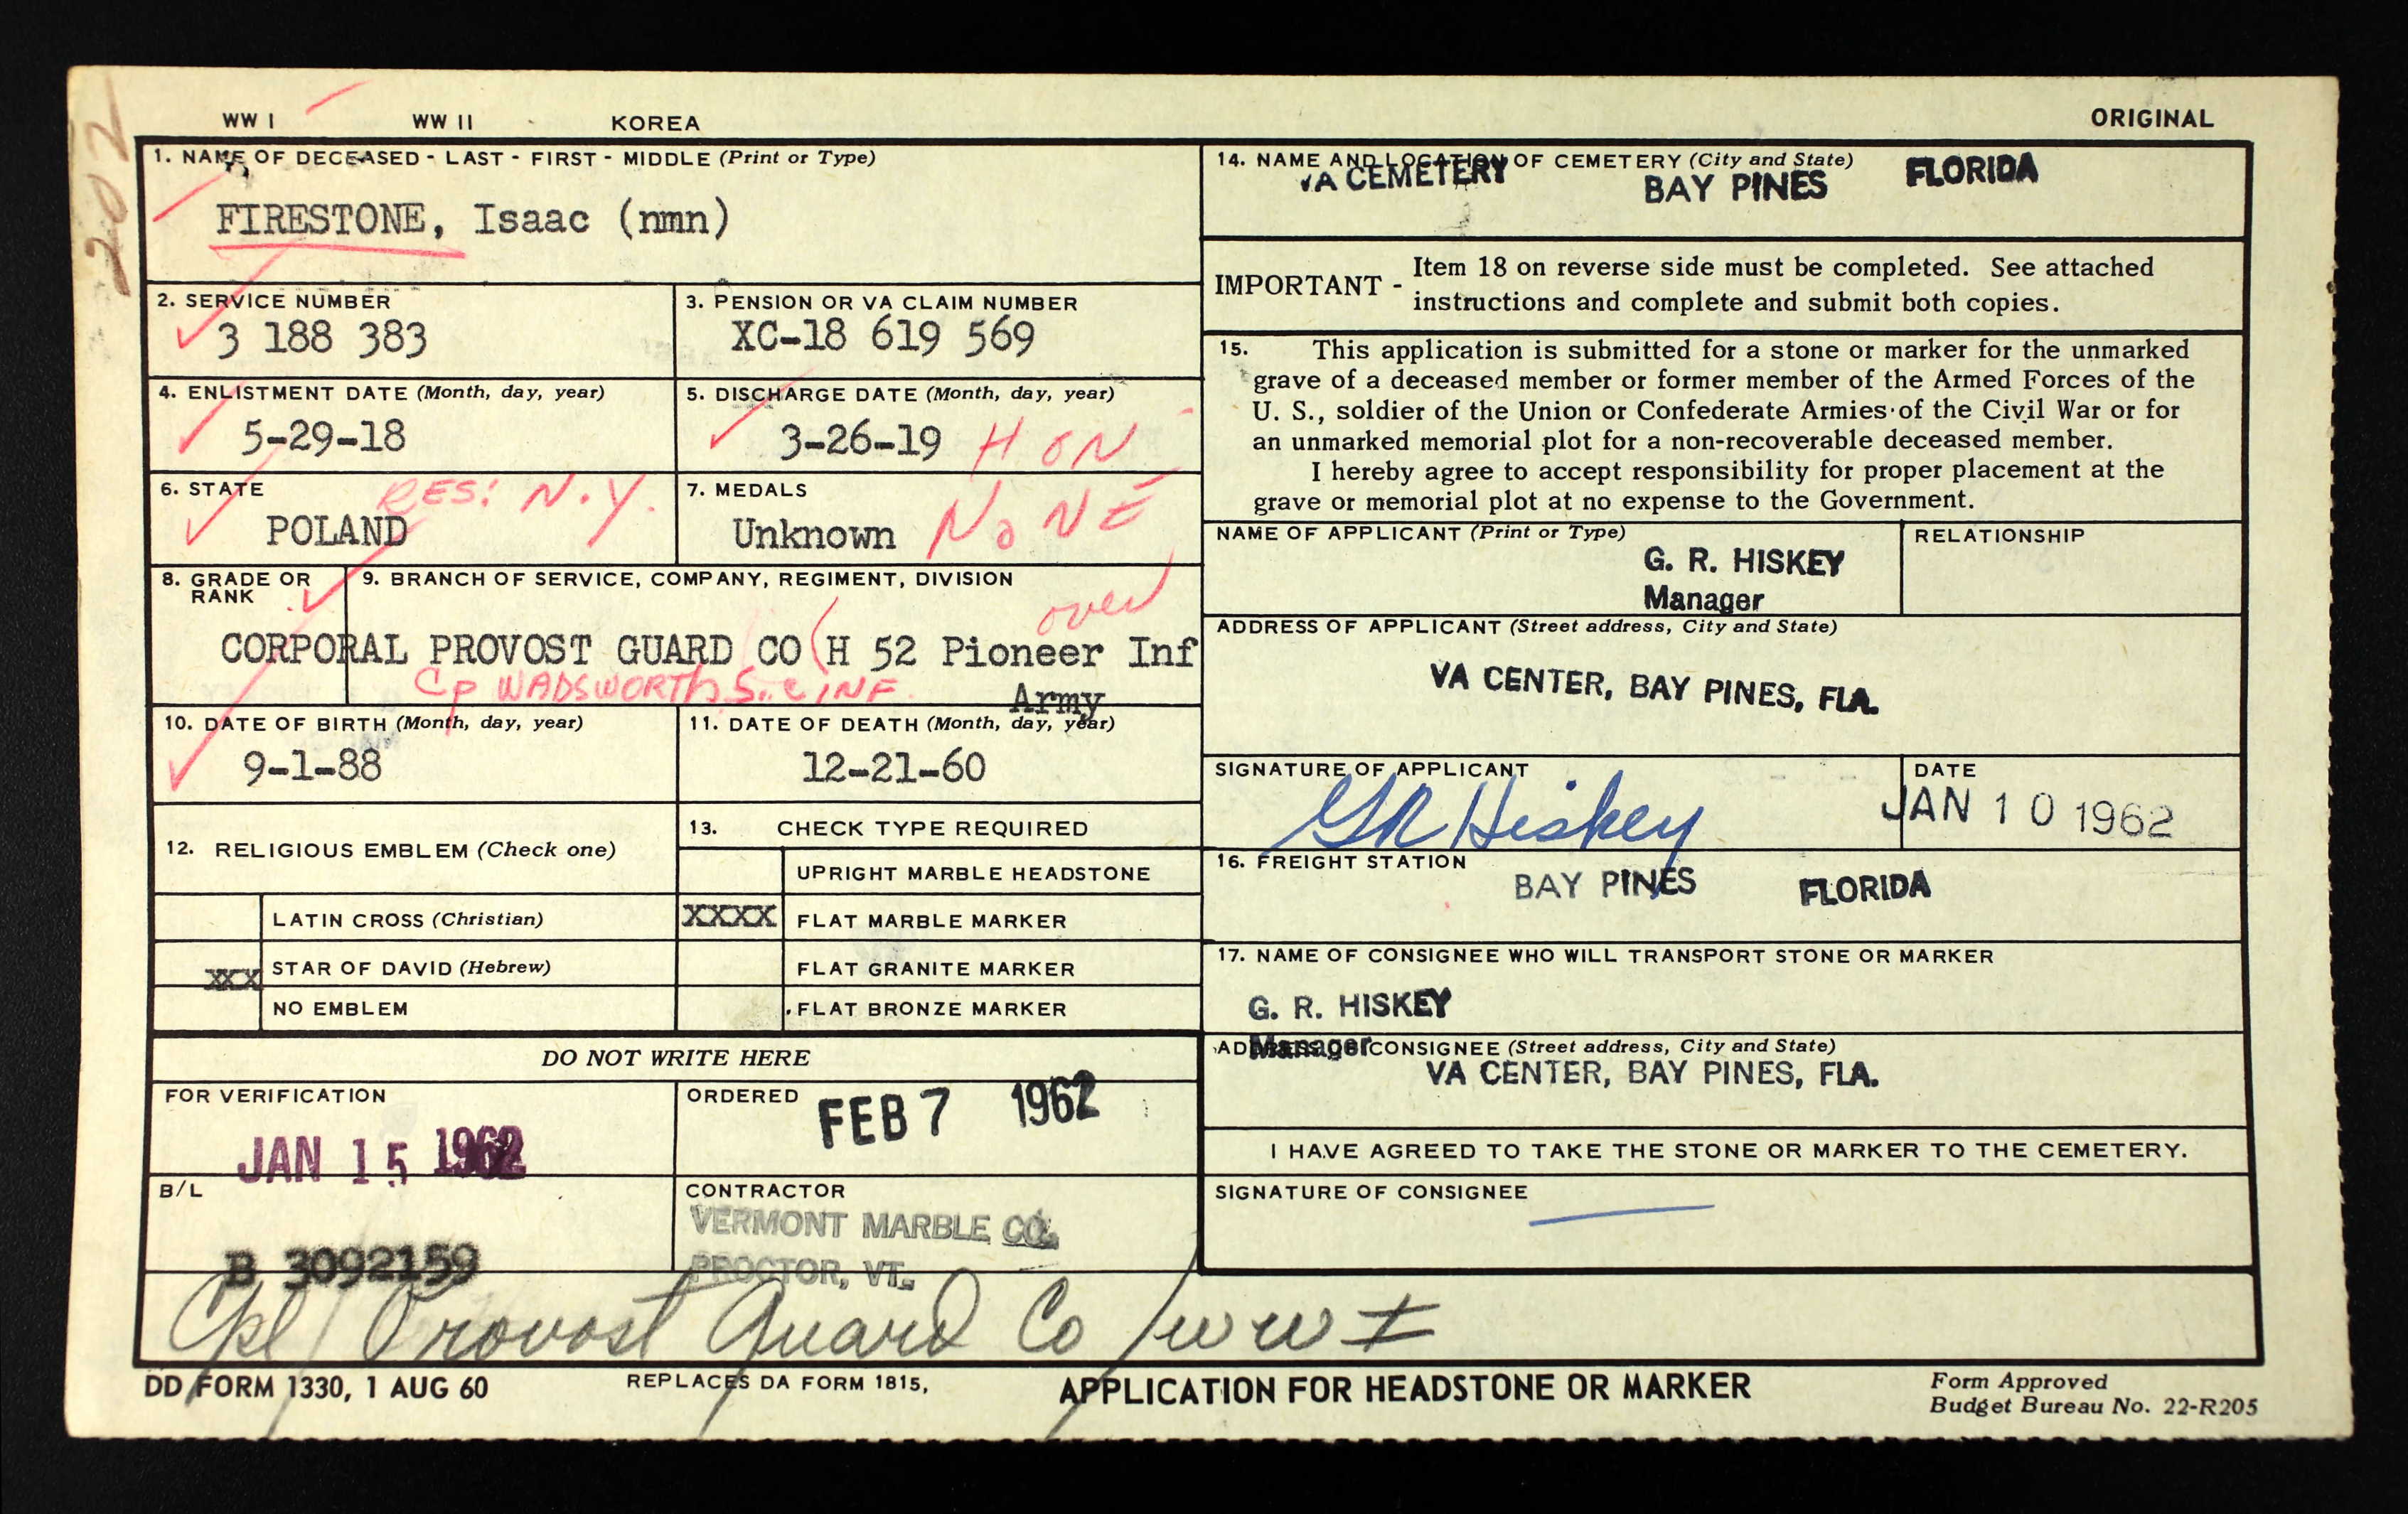 202
WW I WW II KOREA ORIGINAL
1. NAME OF DECEASED - LAST - FIRST - MIDDLE (Print or Type)
FIRESTONE, Isaac (nmn)
2. SERVICE NUMBER
3 188 383
3. PENSION OR VA CLAIM NUMBER
XC-18 619 569
4. ENLISTMENT DATE (Month, day, year)
5-29-18
5. DISCHARGE DATE (Month, day, year)
3-26-19 HON
6. STATE RES: N.Y.
POLAND
7. MEDALS
Unknown NONE
8. GRADE OR RANK
9. BRANCH OF SERVICE, COMPANY, REGIMENT, DIVISION
over
CORPORAL PROVOST GUARD CO (H 52 Pioneer Inf
Cp WADSWORTH S.C INF.
Army
10. DATE OF BIRTH (Month, day, year)
9-1-88
11. DATE OF DEATH (Month, day, year)
12-21-60
12. RELIGIOUS EMBLEM (Check one)
LATIN CROSS (Christian)
XXX STAR OF DAVID (Hebrew)
NO EMBLEM
13. CHECK TYPE REQUIRED
UPRIGHT MARBLE HEADSTONE
XXXX FLAT MARBLE MARKER
FLAT GRANITE MARKER
FLAT BRONZE MARKER
DO NOT WRITE HERE
FOR VERIFICATION
JAN 15 1962
ORDERED
FEB 7 1962
B/L
B 3092159
CONTRACTOR
VERMONT MARBLE CO.
PROCTOR, VT.
14. NAME AND LOCATION OF CEMETERY (City and State)
VA CEMETERY BAY PINES FLORIDA
IMPORTANT - Item 18 on reverse side must be completed. See attached
instructions and complete and submit both copies.
15. This application is submitted for a stone or marker for the unmarked
grave of a deceased member or former member of the Armed Forces of the
U. S., soldier of the Union or Confederate Armies of the Civil War or for
an unmarked memorial plot for a non-recoverable deceased member.
I hereby agree to accept responsibility for proper placement at the
grave or memorial plot at no expense to the Government.
NAME OF APPLICANT (Print or Type)
G. R. HISKEY
Manager
RELATIONSHIP
ADDRESS OF APPLICANT (Street address, City and State)
VA CENTER, BAY PINES, FLA.
SIGNATURE OF APPLICANT
GR Hiskey
DATE
JAN 10 1962
16. FREIGHT STATION
BAY PINES FLORIDA
17. NAME OF CONSIGNEE WHO WILL TRANSPORT STONE OR MARKER
G. R. HISKEY
Manager
ADDRESS OF CONSIGNEE (Street address, City and State)
VA CENTER, BAY PINES, FLA.
I HAVE AGREED TO TAKE THE STONE OR MARKER TO THE CEMETERY.
SIGNATURE OF CONSIGNEE
Cpl / Provost Guard Co / WW I
DD FORM 1330, 1 AUG 60 REPLACES DA FORM 1815, APPLICATION FOR HEADSTONE OR MARKER
Form Approved
Budget Bureau No. 22-R205